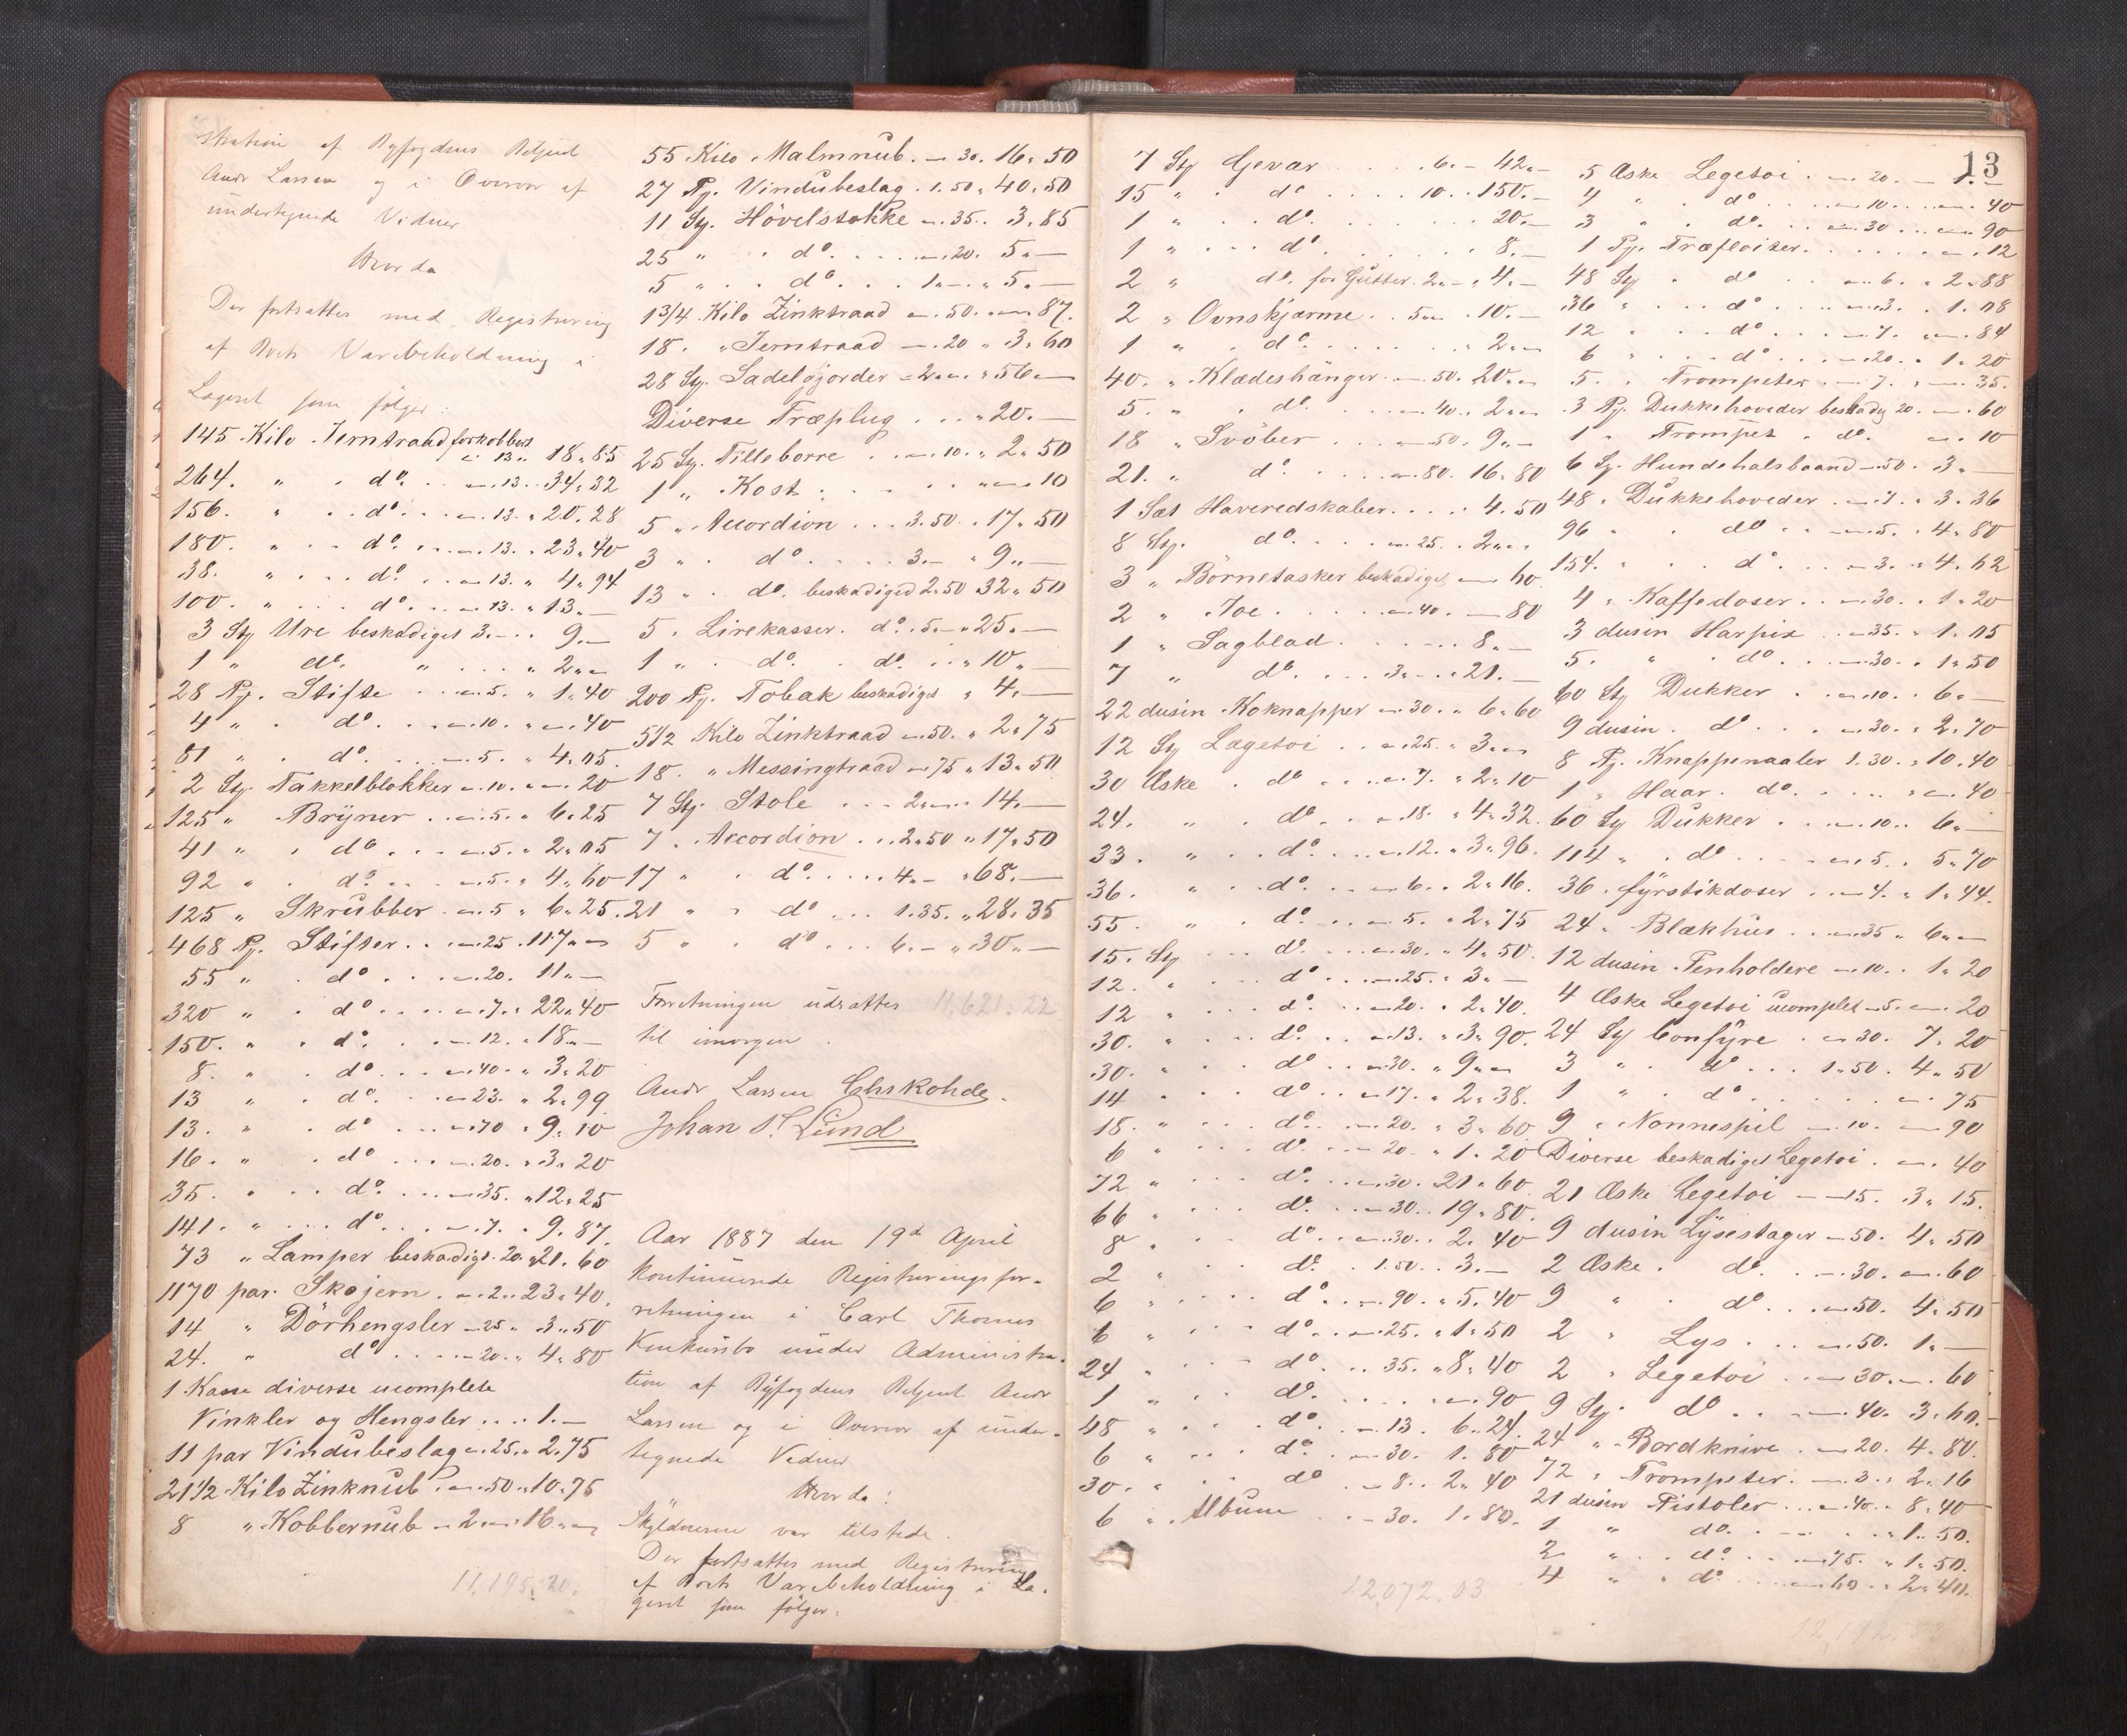 stration af Byfogdens Betjent
Andr Larsen og i Overvær af
undertegnede Vidner
Hvorda
Der fortsattes med Registrering
af Boets Varebeholdning i
Lageret som følger:
145 Kilo Jerntraad forkobbert
" 13 " 18 " 85
264. " . do. . . " 13 . . 34 " 32
156. " . . do. . . " 13 . " 20. 28
180. " . . do. . . " 13. " 23 " 40
38. " . . . do. . . " 13. " 4 " 94
100. " . . . do. . . " 13. " 13. —
3 Sty Ure beskadiget 3. — . . 9. —
1 " do. " . . . " 2 " —
28 Pj. Stifte . . . " 5. " 1 " 40
4 " . do. . . " 10. " — . 40
81 " . do. . . . " 5. " 4. 05.
2 Sty. Takkelblokker " 10. " — . 20
125 " Bryner . . " 5. " 6 " 25
41 " . do . . . " 5. " 2 " 05
92 " . do. . . . " 5. " 4 " 60
125 " Skrubber . " 5 " 6 " 25.
468 Pj. Stifter . . " 25 . 117 " —
55 " . do . . . " 20. 11 " —
320 " . do . . . . " 7. " 22 " 40
150. " . do. . . . " 12. " 18 " —
8. " . do. . . " 40. " 3 " 20
13 " . do. . . " 23. " 2 " 99
13. " . do . . . " 70 " 9. 10
16. " . do . . . " 20. " 3 " 20
35. " . . do. . . . " 35. " 12 " 25
141. " . . . do . . . " 7. " 9. 87.
73 " Lamper beskadigt. 20. " 21. 60
1170 par. Skojern . " 2. " 23 " 40.
14 " Dörhengsler " 25 " 3 " 50
24. " do . . . . " 20. " 4 " 80
1 Kasse diverse ucomplete
Vinkler og Hengsler . . . . 1. —
11 par Vindubeslag " . 25. " 2. 75
21 1/2 Kilo Zinknub . " . 50 " 10. 75
8 " Kobbernub " 2 " — 16 " —
11,195.20.
55 Kilo Malmnub. " 30. 16 " 50
27 Pj. Vindubeslag . 1. 50 " 40 " 50
11 Sty. Hövelstokke " . 35. . 3 " 85
25 " . do. . . . " 20. 5 " —
5 " . . do . . . 1 " — . " 5 " —
1 3/4 Kilo Zinktraad " . 50. " — 87.
18. " Jerntraad " . 20 " 3 " 60
28 Sty. Sadelgjorder " 2 " — " 56 " —
Diverse Træplug . . . " 20. —
25 Sty. Tilleborre . . " . 10. " 2 " 50
1 " Kost . . . . . " — 10
5 " Accordion . . . 3. 50. . 17 " 50
3 " . do . . . . 3. — " 9 " —
13 " . do. beskadiged 2. 50 32 " 50
5 " Lirekasser. do. . 5. — " 25 " —
1 " . do. . do. . . " 10 " —
200 Pj. Tobak beskadiget " 4. —
5 1/2 Kilo Zinktraad " . 50. " 2 " 75
18. " Messingtraad " 75 " 13 " 50
7 Sty. Stole . . . 2 " — " 14. —
7 " Accordion . . 2 " 50 " 17 " 50
17 " . do. . . . . 4. — " 68. —
21 " . do . . . 1. 35. " 28 " 35
5 " . do . . . 6. — " 30 " —
Forretningen udsattes 11,621.22
til imorgen.
Andr Larsen Chs Rohde.
Johan P. Lund
Aar 1887 den 19d April
kontinuerede Registreringsfor-
retningen i Carl Thomes
Konkursbo under Administra-
tion af Byfogdens Betjent Andr
Larsen og i Overvær af under-
tegnede Vidner
Hvorda:
Skyldneren var tilstede.
Der fortsattes med Registrering
af Boets Varebeholdning i La-
geret som følger:
13
7 Sty Gevær . . . . 6. — 42 " —
15 " . do . . . . 10. . 150. —
1 " . . do. . . . . . 20 " —
1 " . . . do . . . . . . 8. —
2 " do. for Gutter. 2 " — " 4 " —
2 " Ovnskjærme . . 5 " — . 10. —
1 " . do. . . . . . . " 2 " —
40. " Klædeshänger " . 50. 20 " —
5. " . do. . . . . " 40. . 2 " —
18 " Svöber . . . " 50. " 9 " —
21. " do . . . . " 80. 16 " 80
1 Sæt Haveredskaber. . . . . 4. 50
8 Sty. do. . . . " . 25. . 2 " —
3 " Börnetasker beskadiget — 60.
2 " Joe . . . . . " 40. — 80
1 " Sagblad. . . . . . 8 " —
7 " do. . . . 3. — . 21. —
22 dusin Koknapper " 30. " 6 " 60
12 Sty Legetoi . . " . 25. " 3 " —
30 Æske . do . . . " 7. " 2 " 10
24. " . do . . " 18. " 4 " 32.
33. " . . do . . . " 12. " 3 " 96.
36. " . . do. . . " 6. . 2 " 16.
55. " . do . . . " 5. " 2 " 75
15. Sty . . . do. . . " 30. " 4 " 50.
12. " . . . do . . . " 25. " 3 " —
12 " . . . do . . . " 20. . 2 " 40.
30. " . . . do. . . " 13. " 3 " 90.
30. " . . do . . . " 30. " 9 " —
14 " . . do . . " 17. " 2 " 38.
18. " . . . do. . . " 20. " 3 " 60
6 " . . . do. . . " 20. " 1 " 20
72 " . . . do. . . " 30. 21 " 60.
66 " . . . do. . . " 30. . 19 " 80.
8 " . . . do . . . " 30. . 2. 40
2 " . . . do. . 1. 50. . 3. —
6 " . . . . do. . " 90. " 5. 40
6 " . . . do. . " 25. " 1 " 50
24 " . . . do . . . 35. " 8 " 40
1 " . . . do. . . . . . — . 90
48 " . . . do. . . " 13. 6. 24.
6 " . . . do. . . " 30. 1. 80
30. " . . do . . " 8. . 2. 40
6 " Album . . . " 30. 1. 80.
12,072.03
5 Æske Legetoi . . " 20. — 1. —
4 " . do . . . " 10. . . — 40
3 " . do. . . " 30 . . . — 90
1 Pj. Træfloiter. . . . . . . — . 12
48 Sty . do . . " 6. " 2 " 88
36 " . . do . . . " 3. . 1. 08
12 " . . do . . . " 7. " — 84
6 " . . . do . . . " 20. " 1 " 20
5. " Trompeter . " 7. " — 35.
3 Pj. Dukkehoveder beskadig 20. — . 60
1 " Trompet . do. — . 10
6 Sy. Hundehalsbaand " 50. 3 " —
48 " Dukkehoveder . " 7. " 3 " 36
96 " . do . . " 5. " 4 " 80
154. " . do . . . " 3. " 4. 62
4 " Kaffedoser . . " 30. . 1 " 20
3 dusin Harpix . . " 35. " 1. 05
5. " . do . . . " 30. " 1 " 50
60 Sty Dukker . . " 10. . 6 " —
9 dusin . do . . . " 30. " 2 " 70
8 Pj. Knappenaaler 1. 30. " 10. 40
1 " Haar. do. . . . . " — . 40
60 Sy Dukker . . . " 10. . 6 " —
114 " . do . . . . " 5. . 5 " 70
36. fyrstikdoser . . " 4. " 1 " 44.
24 " Blækhus . . . " 35 " 6 " —
12 dusin Penholdere " 10. . 1 " 20
4 Æske Legetoi ucomplet " 5. — 20
24 Sy Comfyre . " 30. 7. 20
3 " . do . . . 1 " 50. 4 " 50
1 " . do . . . . . — . 75
9 " Nonnespil " . 10. — 90
Diverse beskadiget Legetoi . — . 40
21 Æske Legetoi — " 15. . 3 " 15.
9 dusin Lysestager " 50. 4 " 50
2 Æske . do. . . " 30. — 60
9 " . do. . . " 50. 4 " 50
2 " Lys . . . " . 50. 1 " —
2 " Legetoi . . . " 30. — . 60
9 Sy. do . . . " 40. 3. 60.
24 " Bordknive . " 20. 4 " 80.
72 " Trompeter . " 3. " 2. 16
21 dusin Pistoler . . . " 40. . 8. 40
1 " do. . . . . . " 1 " 50.
2 " . do. . . " 75. " 1 " 50.
4 " . do. . . . " 60. " 2 " 40.